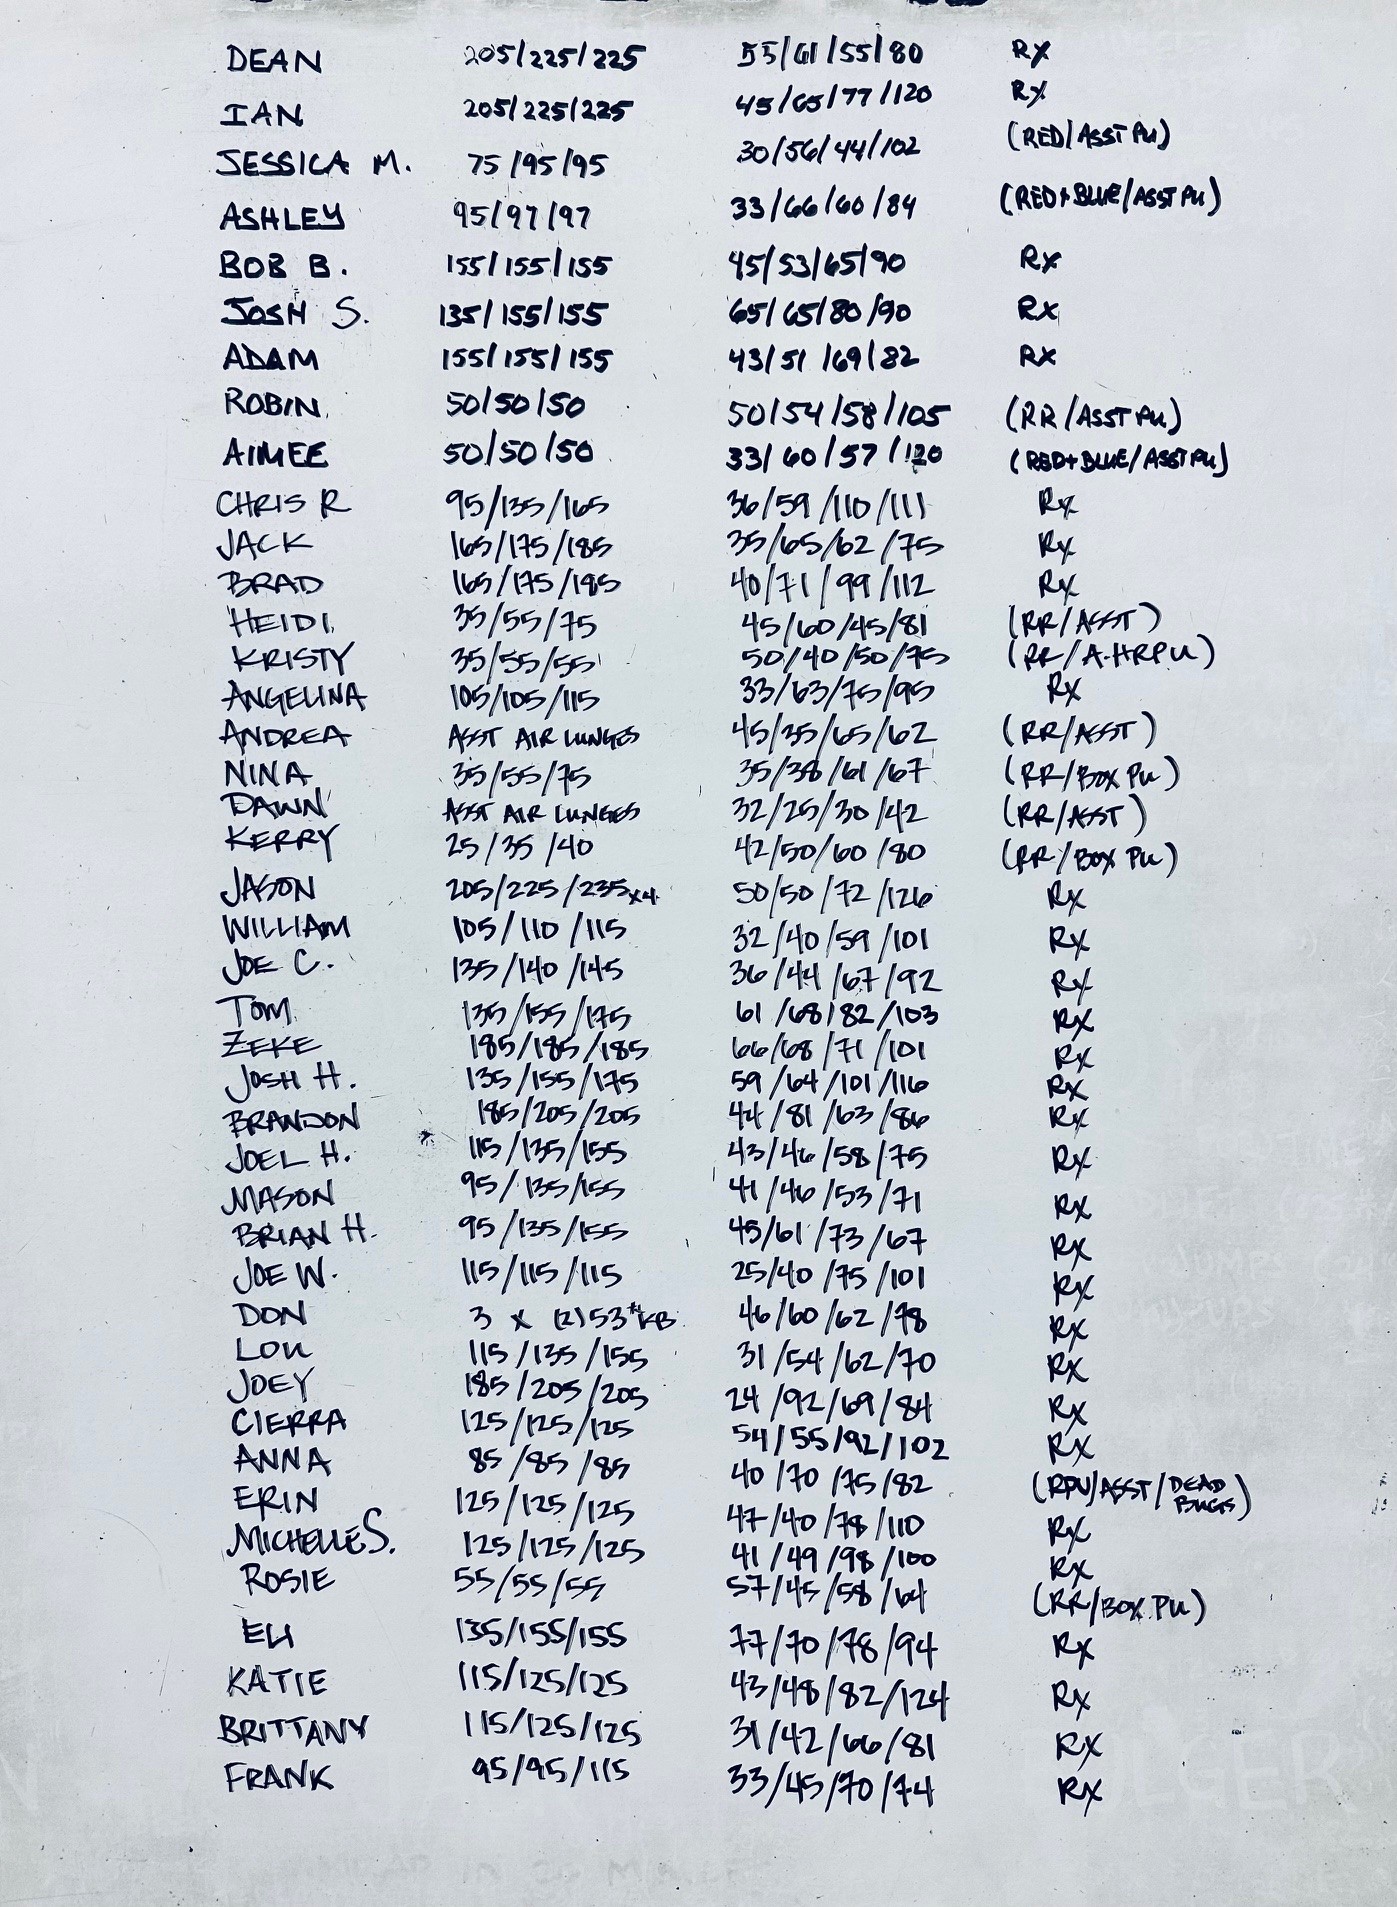 DEAN 205/225/225 55/61/55/80 Rx
IAN 205/225/225 45/65/77/120 Rx
JESSICA M. 75/95/95 30/56/44/102 (RED/ASST PU)
ASHLEY 95/97/97 33/66/60/84 (RED+BLUE/ASST PU)
BOB B. 155/155/155 45/53/65/90 Rx
JOSH S. 135/155/155 65/65/80/90 Rx
ADAM 155/155/155 43/51/69/82 Rx
ROBIN 50/50/50 50/54/58/105 (RR/ASST PU)
AIMEE 50/50/50 33/60/57/120 (RED+BLUE/ASST PU)
CHRIS R 95/135/165 36/59/110/111 Rx
JACK 165/175/185 35/65/62/75 Rx
BRAD 165/175/185 40/71/99/112 Rx
HEIDI 35/55/75 45/60/45/81 (RR/ASST)
KRISTY 35/55/55 50/40/50/75 (RR/A-HRPU)
ANGELINA 105/105/115 33/63/75/95 Rx
ANDREA ASST AIR LUNGES 45/35/65/62 (RR/ASST)
NINA 35/55/75 35/38/61/67 (RR/BOX PU)
DAWN ASST AIR LUNGES 32/25/30/42 (RR/ASST)
KERRY 25/35/40 42/50/60/80 (RR/BOX PU)
JASON 205/225/235x4 50/50/72/126 Rx
WILLIAM 105/110/115 32/40/59/101 Rx
JOE C. 135/140/145 36/44/67/92 Rx
TOM 135/155/175 61/68/82/103 Rx
ZEKE 185/185/185 66/68/71/101 Rx
JOSH H. 135/155/175 59/64/101/116 Rx
BRANDON 185/205/205 44/81/63/86 Rx
JOEL H. 115/135/155 43/46/58/75 Rx
MASON 95/135/155 41/46/53/71 Rx
BRIAN H. 95/135/155 45/61/73/67 Rx
JOE W. 115/115/115 25/40/75/101 Rx
DON 3 x (2)53# KB 46/60/62/78 Rx
LOU 115/135/155 31/54/62/70 Rx
JOEY 185/205/205 24/92/69/84 Rx
CIERRA 125/125/125 54/55/92/102 Rx
ANNA 85/85/85 40/70/75/82 (RPU/ASST/DEAD BUGS)
ERIN 125/125/125 47/40/78/110 Rx
MICHELLE S. 125/125/125 41/49/98/100 Rx
ROSIE 55/55/55 57/45/58/64 (RR/BOX PU)
ELI 135/155/155 77/70/78/94 Rx
KATIE 115/125/125 43/48/82/124 Rx
BRITTANY 115/125/125 31/42/66/81 Rx
FRANK 95/95/115 33/45/70/74 Rx